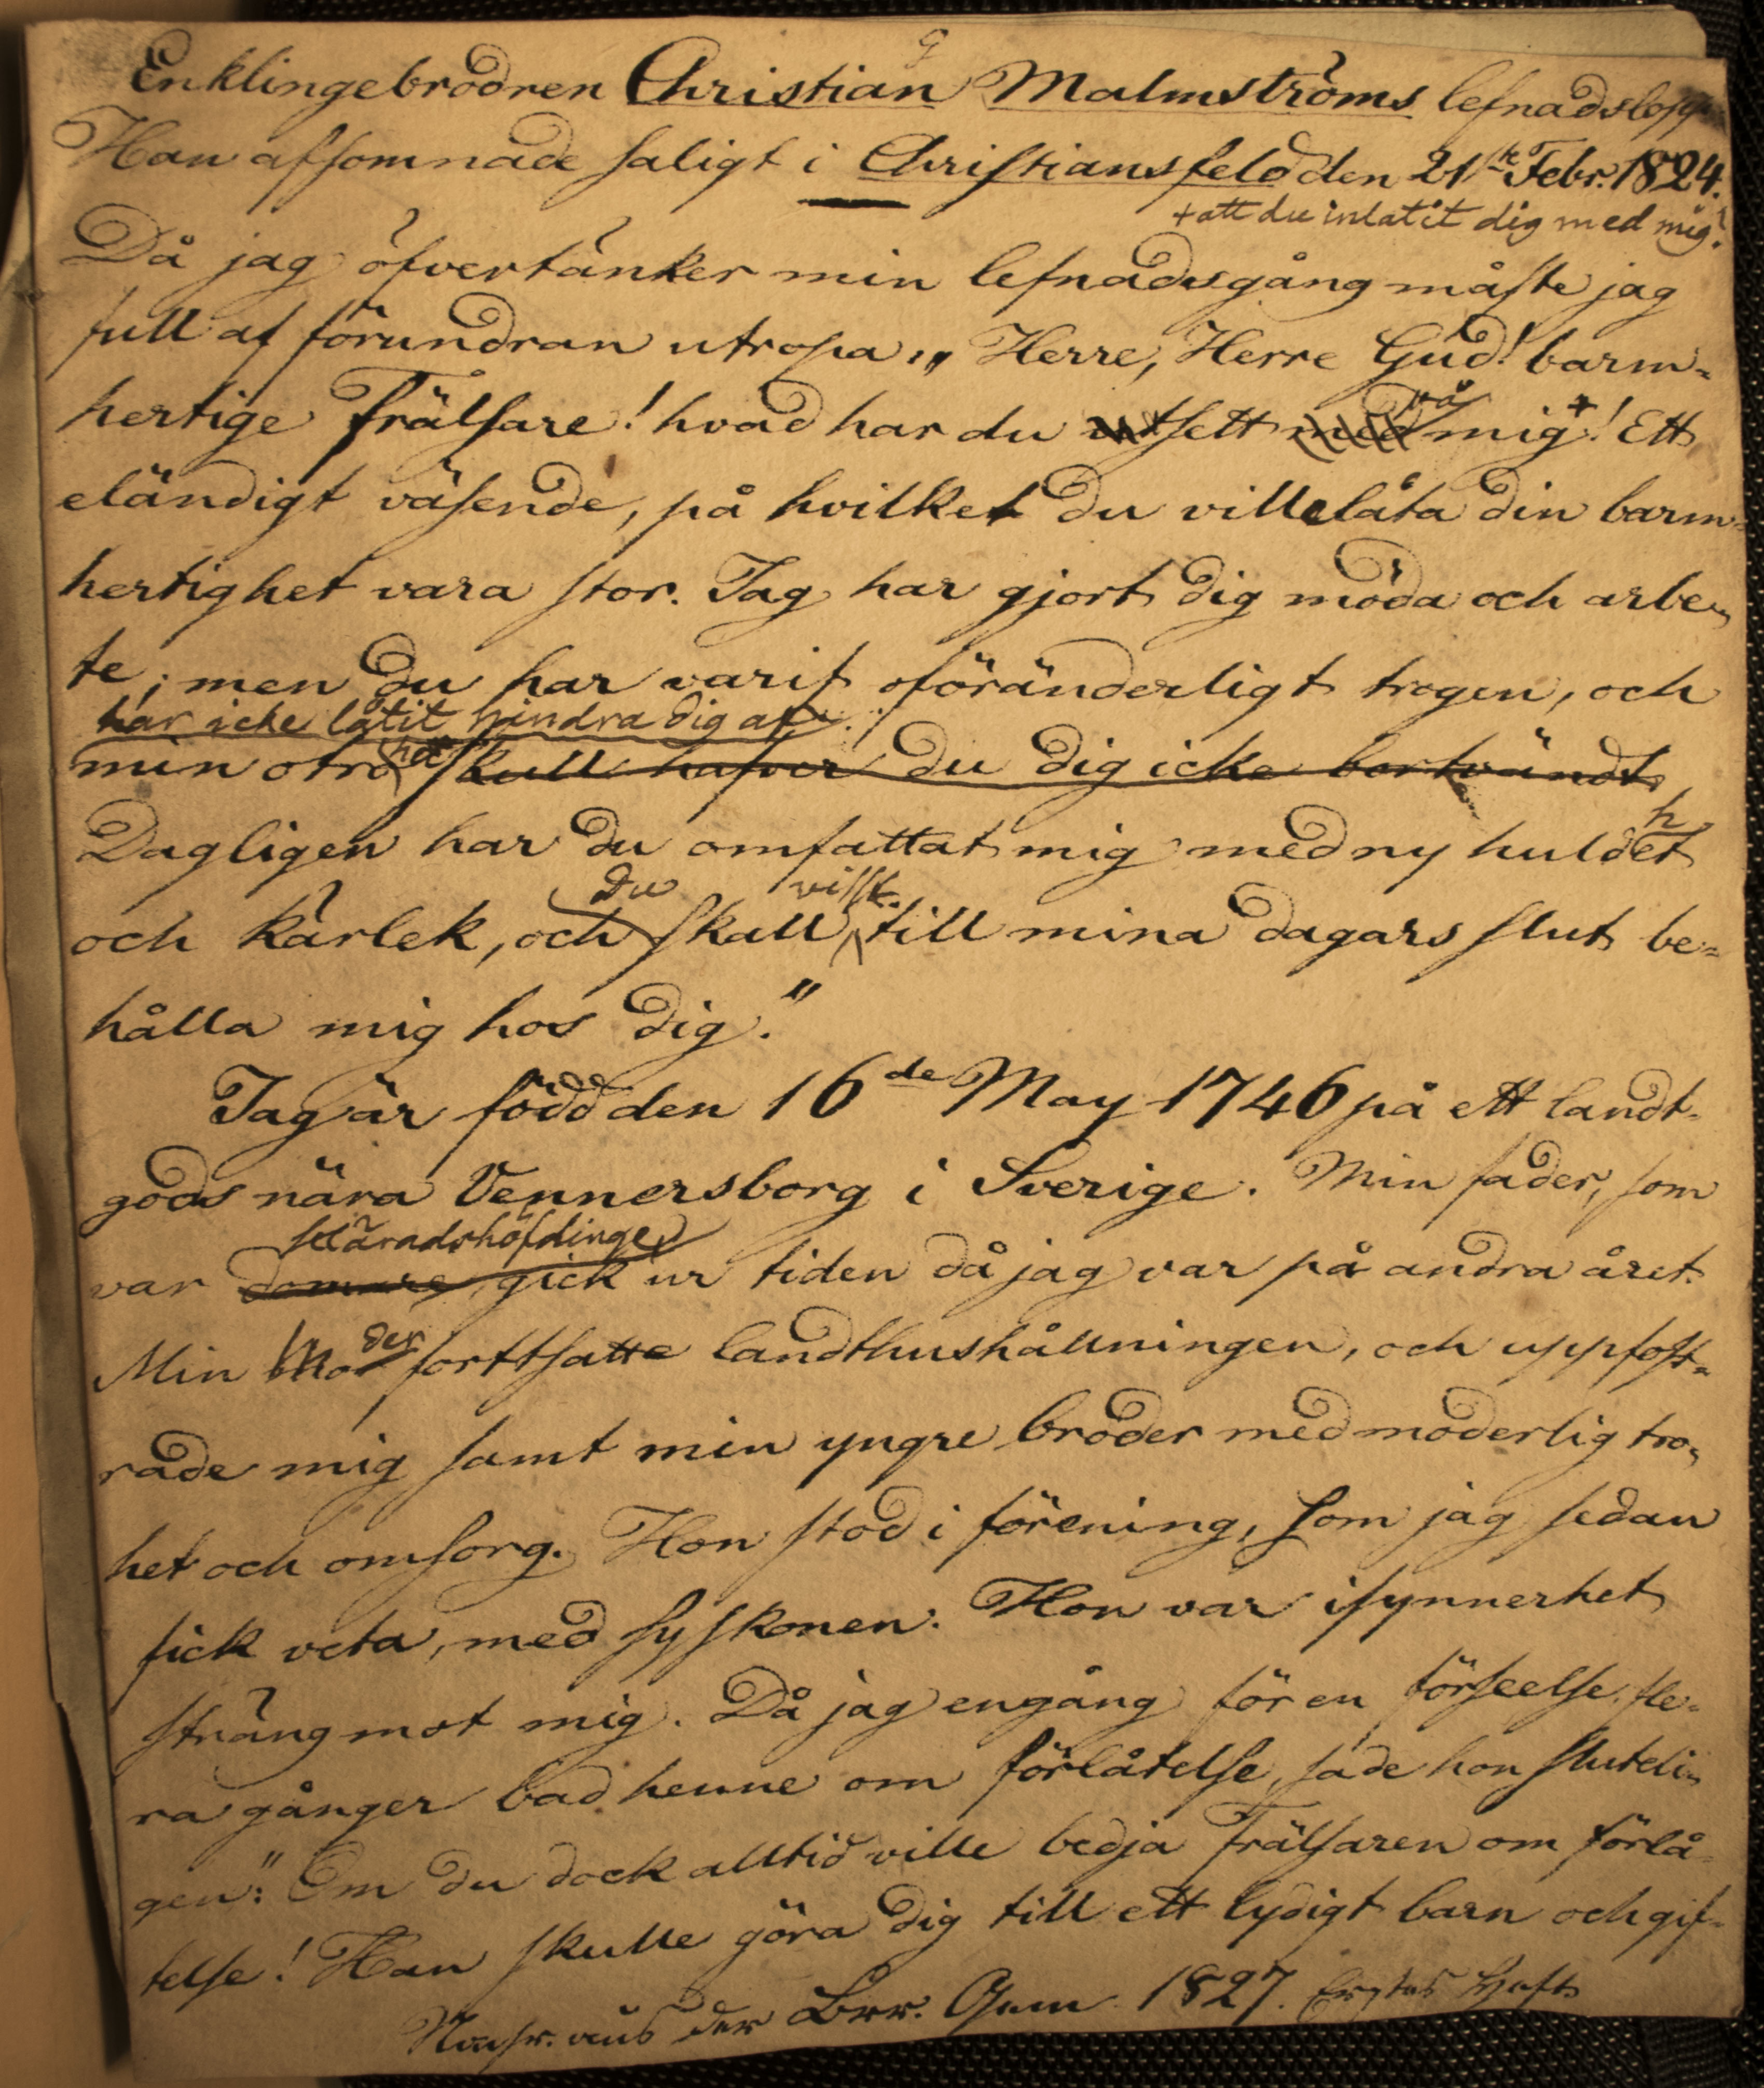 Enklingebrodren Christian Malmströms lefnadslopp
Han afsomnade saligt i Christiansfeld den 21 Febr. 1824.
+ att du inlatit dig med mig?
Då jag öfvertänker min lefnadsgång måste jag
full af förundran utropa „ Herre, Herre Gud! barm-
hertige Frälsare! hvad har du sett på mig +! Ett
eländigt väsende, på hvilket du ville låta din barm-
hertighet vara stor. Jag har gjort dig möda och arbe-
te; men du har varit oföränderligt trogen, och
har icke låtit hindra dig af
min otrohet skull hafver du dig icke bortvändt
Dagligen har du omfattat mig med ny huldhet
du visst
och kärlek, och skall till mina dagars slut be-
hålla mig hos dig."
Jag är född den 16de May 1746 på ett landt-
gods nära Vennersborg i Sverige. Min fader, som
Häradshöfdinge
var domare gick ur tiden då jag var på andra året.
Min Moder forttsatte landthushållningen, och uppfost-
rade mig samt min yngre broder med moderlig tro-
het och omsorg. Hon stod i förening, som jag sedan
fick veta, med syskonen. Hon var isynnerhet
sträng mot mig. Då jag engång för en förseelse fle-
ra gånger bad henne om förlåtelse, sade hon sluteli-
gen: "Om du dock alltid ville bedja Frälsaren om förlå-
telse! Han skulle göra dig till ett lydigt barn och gif-
Nachr. aus der Brr. Gem 1827. Erstes Heft